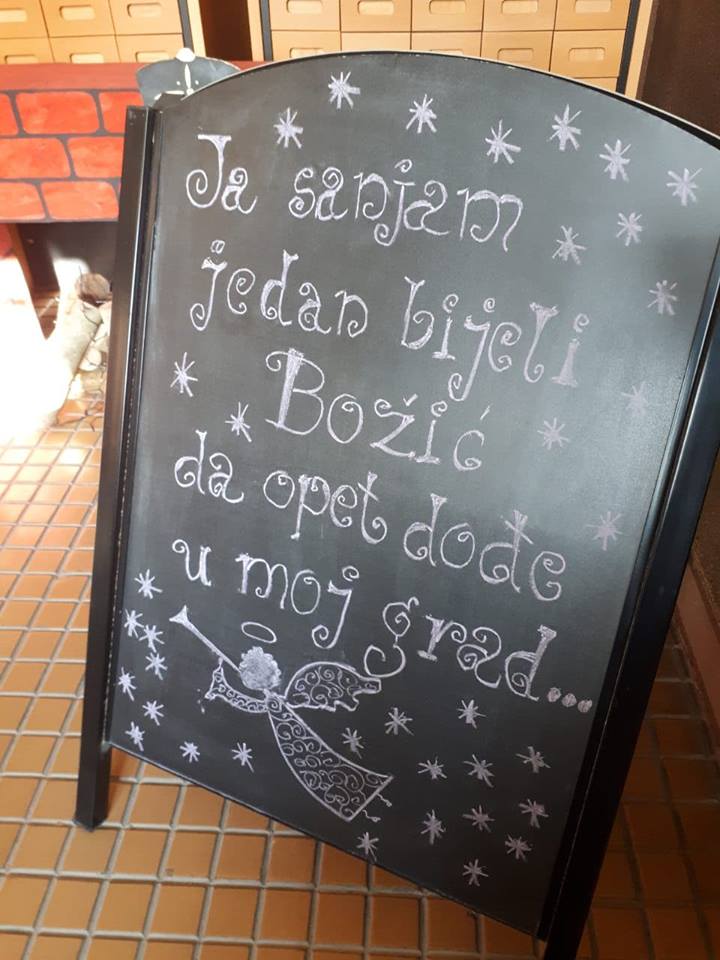 Ja sanjam
jedan bijeli
Božić
da opet dođe
u moj grad...